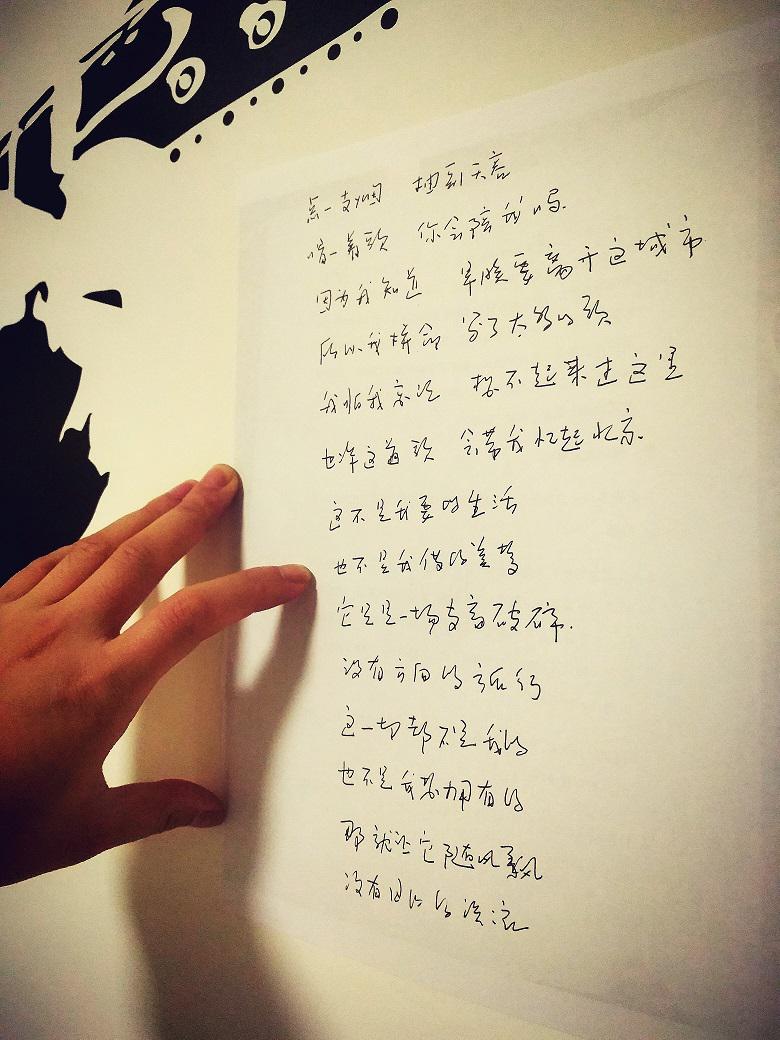 点一支烟 抽到天亮
唱一首歌 你会陪我吗
因为我知道 早晚要离开这城市
所以我拼命 写了太多的歌
我怕我忘记 想不起来过这里
也许这首歌 会带我忆起北京
这不是我要的生活
也不是我借的
它只是一场支离破碎
没有方向的旅行
这一切都不是我的
也不是我想拥有的
那就让它随风飘
没有目的的流浪